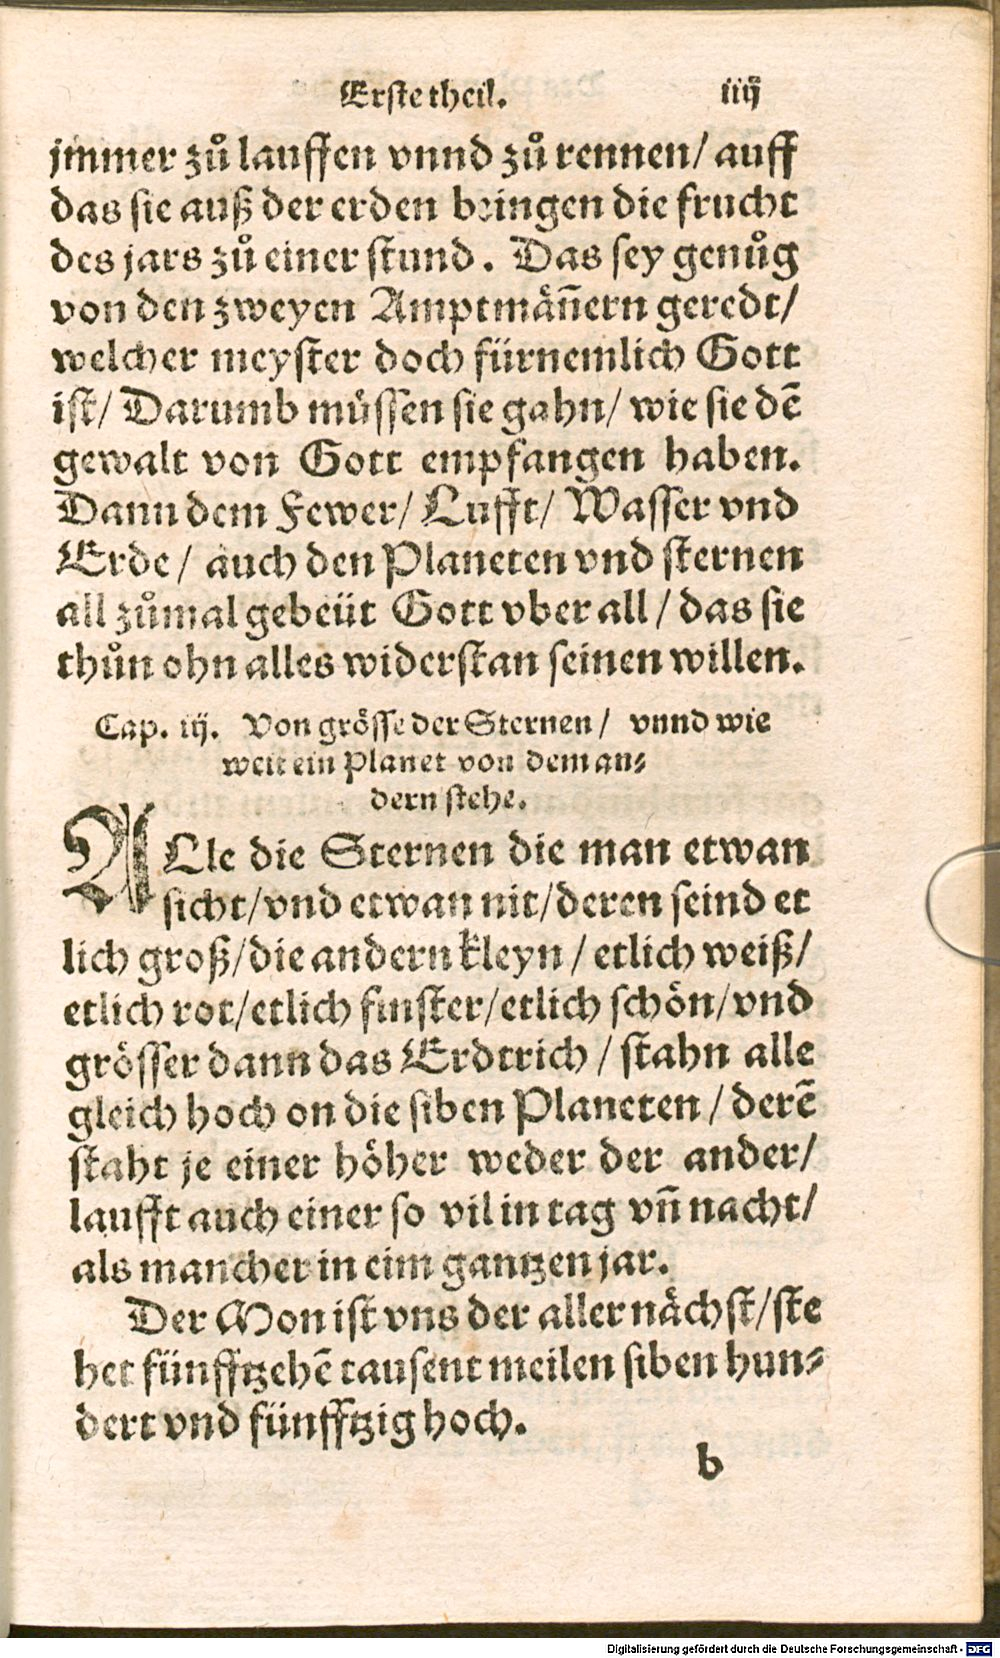 Erste theil. iiij
jmmer zů lauffen vnnd zů rennen/ auff
das sie auß der erden bringen die frucht
des jars zů einer stund. Das sey genůg
von den zweyen Amptmäñern geredt/
welcher meyster doch fürnemlich Gott
ist/ Darumb müssen sie gahn/ wie sie dẽ
gewalt von Gott empfangen haben.
Dann dem Fewer/ Lufft/ Wasser vnd
Erde/ auch den Planeten vnd sternen
all zůmal gebeüt Gott vber all/ das sie
thůn ohn alles widerstan seinen willen.
Cap. iij. Von grösse der Sternen/ vnnd wie
weit ein Planet von dem an⸗
dern stehe.
ALle die Sternen die man etwan
sicht/vnd etwan nit/deren seind et
lich groß/die andern kleyn/ etlich weiß/
etlich rot/etlich finster/etlich schön/vnd
grösser dann das Erdtrich/ stahn alle
gleich hoch on die siben Planeten/ derẽ
staht je einer höher weder der ander/
laufft auch einer so vil in tag vñ nacht/
als mancher in eim gantzen jar.
Der Mon ist vns der aller nächst/ste
het fünfftzehẽ tausent meilen siben hun⸗
dert vnd fünfftzig hoch.
b
Digitalisierung gefördert durch die Deutsche Forschungsgemeinschaft - DFG